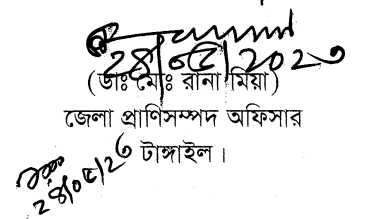 ২৪/০৫/২০২৩
(ডাঃ মোঃ রানা মিয়া)
জেলা প্রাণিসম্পদ অফিসার
টাঙ্গাইল।
২৪/০৫/২৩